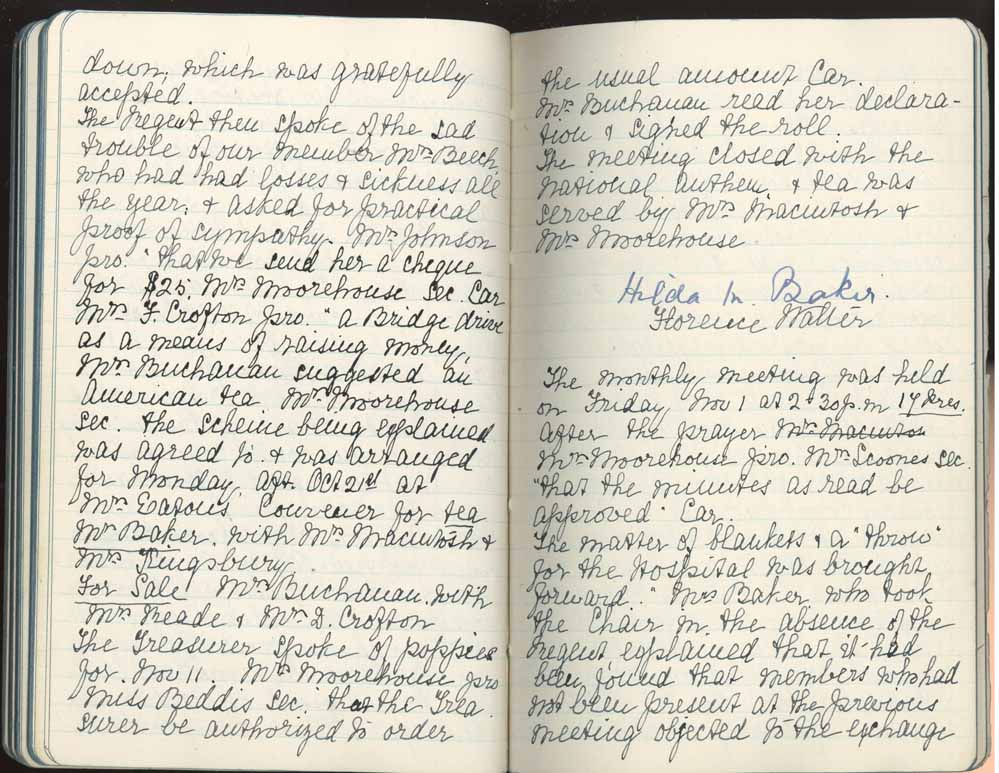 down, which was gratefully
accepted.
The Regent then spoke of the sad
trouble of our member Mrs Beech
who had had losses & sickness all
the year, & asked for practical
proof of sympathy. Mrs Johnson
pro. "that we send her a cheque
for $25. Mrs Moorehouse Sec. Car
Mrs F. Crofton pro. "a Bridge drive
as a means of raising money,
Mrs Buchanan suggested an
American tea Mrs Moorehouse
sec. the scheme being explained
was agreed to & was arranged
for Monday, aft Oct 21st at
Mrs Eaton's Convener for tea
Mrs Baker, with Mrs Macintosh &
Mrs Kingsbury.
For Sale Mrs Buchanan, with
Mrs Meade & Mrs D. Crofton
The Treasurer spoke of poppies
for Nov 11. Mrs Moorehouse pro
Miss Beddis sec. that the Trea
surer be authorized to order
the usual amount Car.
Mrs Buchanan read her declara-
tion & signed the roll.
The meeting closed with the
National Anthem & tea was
served by Mrs Macintosh &
Mrs Moorehouse
Hilda M. Baker.
Florence Walter
The monthly meeting was held
on Friday, Nov 1 at 2.30 p.m 17 pres.
After the prayer Mrs Macinto
Mrs Moorehouse pro. Mrs Scoones sec.
"that the minutes as read be
approved" Car.
The matter of blankets & a "throw"
for the Hospital was brought
forward." Mrs Baker who took
the Chair in the absence of the
Regent, explained that it had
been found that members who had
not been present at the previous
meeting objected to the exchange